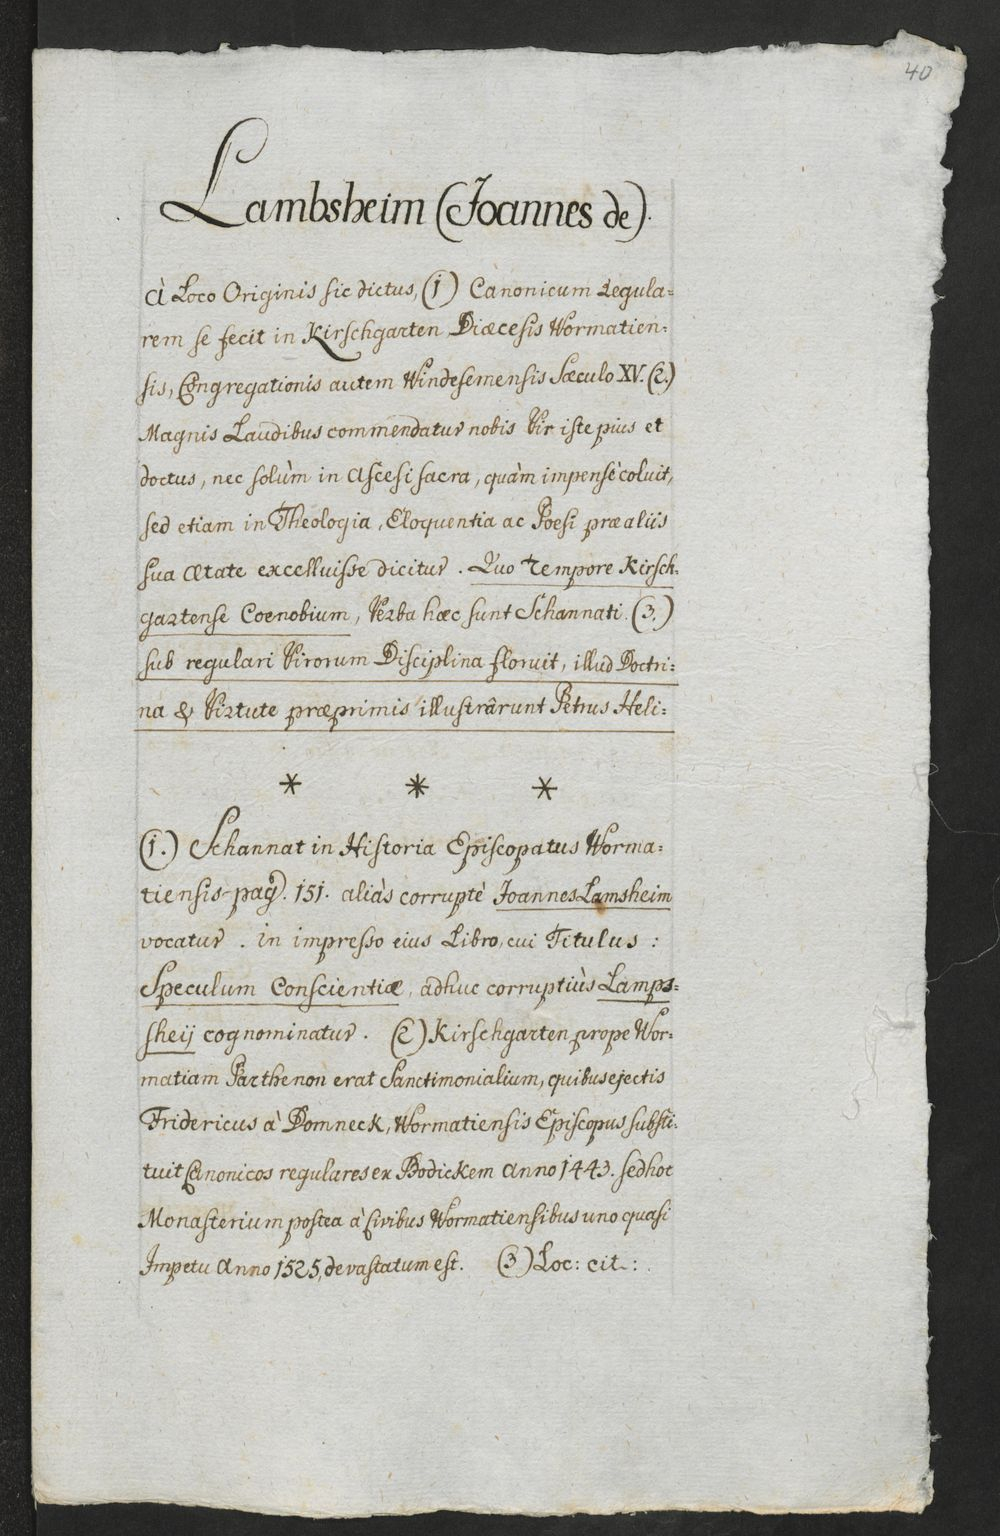 40
Lambsheim (Joannes de).
à Loco Originis sic dictus, (1) Canonicum Regula=
rem se fecit in Kirschgarten Diæcesis Wormatien=
sis, Congregationis autem Windesemensis Sæculo XV. (2.)
Magnis Laudibus commendatur nobis Vir iste pius et
doctus, nec solùm in Ascesi sacra, quàm impensè coluit,
sed etiam in Theologia, Eloquentia ac Poesi præ aliis
sua Ætate excelluisse dicitur. Quo Tempore Kirsch=
gartense Coenobium, Verba hæc sunt Schannati (3.)
sub regulari Virorum Disciplina floruit, illud Doctri=
na & Virtute præprimis illustrârunt Petrus Heli=
* * *
(1.) Schannat in Historia Episcopatus Worma=
tiensis pag. 151. aliàs corruptè Joannes Lamsheim
vocatur. in impresso eius Libro, cui Titulus:
Speculum Conscientiæ, adhuc corruptiùs Lamps=
sheij cognominatur. (2) Kirschgarten prope Wor=
matiam Parthenon erat Sanctimonialium, quibus ejectis
Fridericus à Domneck, Wormatiensis Episcopus substi=
tuit Canonicos regulares ex Bodickem Anno 1443. sed hoc
Monasterium postea à Civibus Wormatiensibus uno quasi
Impetu Anno 1525, devastatum est. (3) Loc: cit: